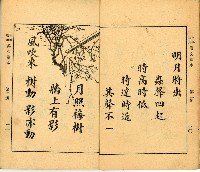 明月將出
蟲聲四起
時高時低
時遠時近
其聲不一
月照梅樹
牆上有影
風吹來
樹動影亦動